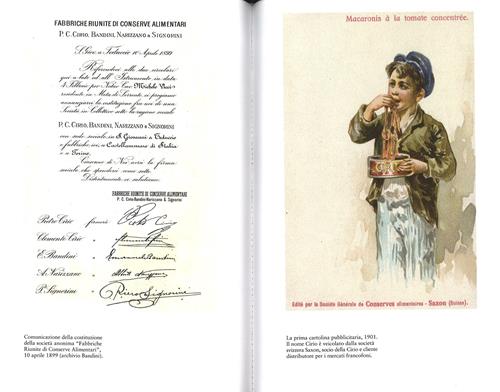 FABBRICHE RIUNITE DI CONSERVE ALIMENTARI
P. C. CIRIO, BANDINI, NARIZZANO & SIGNORINI
S. Giov. a Teduccio 10 Aprile 1899
Riferendoci alle due circolari
qui a lato ed all' Istrumento in data
4 Febbraio per Notar Cav. Michele
residente in Meta di Sorrento, ci pregiamo
annunziarvi la costituzione fra noi di una
Società in Collettivo sotto la ragione sociale
P. C. CIRIO, BANDINI, NARIZZANO & SIGNORINI
con sede sociale in S. Giovanni a Teduccio
e fabbriche ivi, a Castellammare di Stabia
e Torino.
Ciascuno di Noi avrà la firma
sociale che spenderà come sotto.
Distintamente vi salutiamo.
FABBRICHE RIUNITE DI CONSERVE ALIMENTARI
P. C. Cirio-Bandini-Narizzano & Signorini
Pietro Cirio firmerà
Clemente Cirio "
E. Bandini "
A. Narizzano "
P. Signorini "
Piero Signorini
Comunicazione della costituzione
della società anonima "Fabbriche
Riunite di Conserve Alimentari",
10 aprile 1899 (archivio Bandini).
Macaronis à la tomate concentrée.
Edité par la Société Générale de Conserves alimentaires - Saxon (Suisse).
La prima cartolina pubblicitaria, 1901.
Il nome Cirio è veicolato dalla società
svizzera Saxon, socio della Cirio e cliente
distributore per i mercati francofoni.